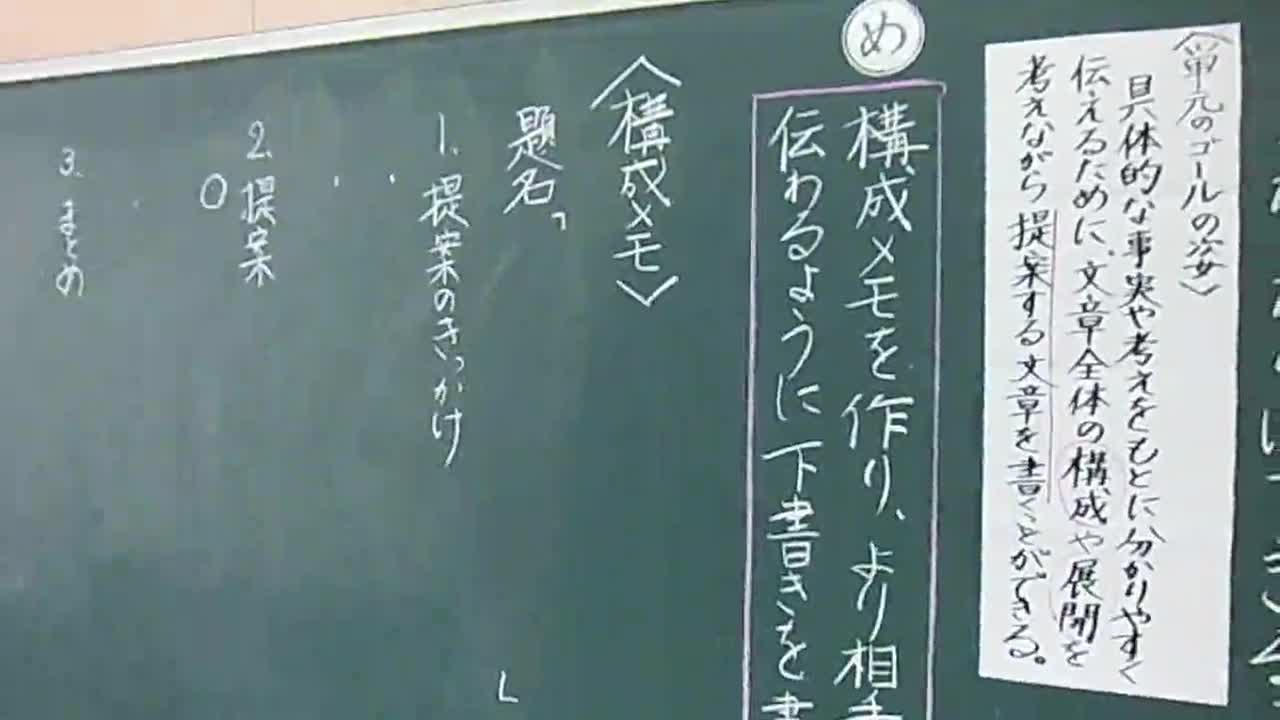 〈単元のゴールの姿〉
具体的な事実や考えをもとに分かりやすく
伝えるために、文章全体の構成や展開を
考えながら提案する文章を書くことができる。
め
構成メモを作り、より相手
伝わるように下書きを書
〈構成メモ〉
題名「 」
1. 提案のきっかけ
・ ・
2. 提案
○
・
3. まとめ